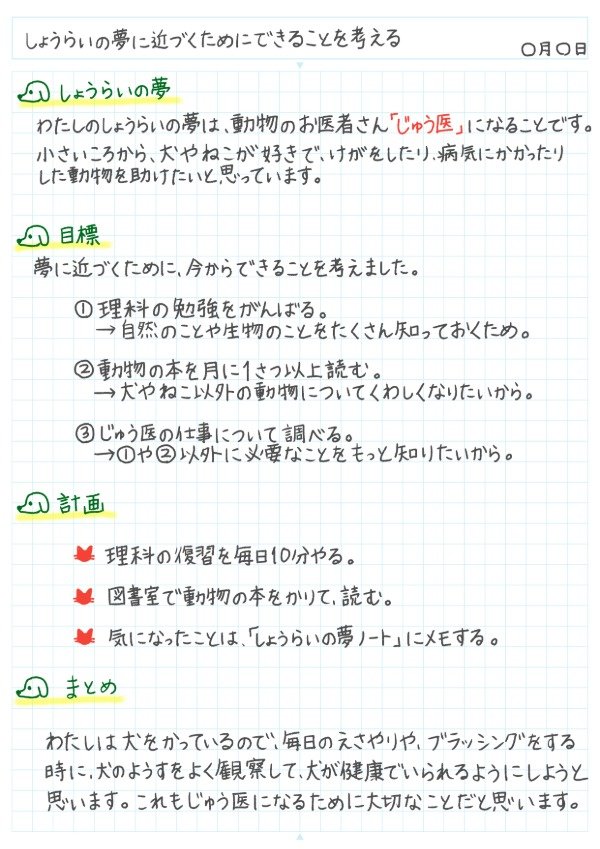 しょうらいの夢に近づくためにできることを考える
〇月〇日
しょうらいの夢
わたしのしょうらいの夢は、動物のお医者さん「じゅう医」になることです。
小さいころから、犬やねこが好きで、けがをしたり、病気にかかったり
した動物を助けたいと思っています。
目標
夢に近づくために、今からできることを考えました。
①理科の勉強をがんばる。
→自然のことや生物のことをたくさん知っておくため。
②動物の本を月に1さつ以上読む。
→犬やねこ以外の動物についてくわしくなりたいから。
③じゅう医の仕事について調べる。
→①や②以外に必要なことをもっと知りたいから。
計画
理科の復習を毎日10分やる。
図書室で動物の本をかりて、読む。
気になったことは、「しょうらいの夢ノート」にメモする。
まとめ
わたしは犬をかっているので、毎日のえさやりや、ブラッシングをする
時に、犬のようすをよく観察して、犬が健康でいられるようにしようと
思います。これもじゅう医になるために大切なことだと思います。